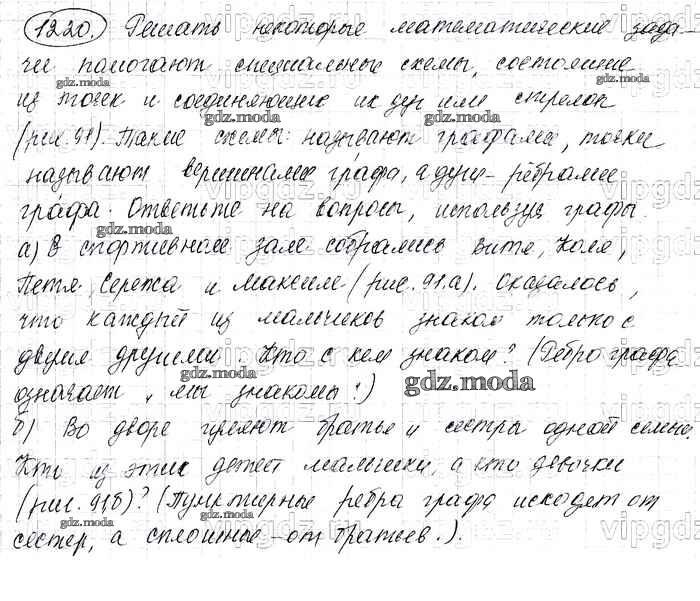 1220. Решать некоторые математические зада-
чи помогают специальные схемы, состоящие
из точек и соединяющих их дуг или стрелок
(рис. 91). Такие схемы называют графами, точки
называют вершинами графа, а дуги - ребрами
графа. Ответьте на вопросы, используя графы.
а) В спортивном зале собрались Витя, Коля,
Петя, Сережа и Максим (рис. 91.а). Оказалось,
что каждый из мальчиков знаком только с
двумя другими. Кто с кем знаком? (Ребро графа
означает "мы знакомы".)
б) Во дворе гуляют братья и сестры одной семьи.
Кто из этих детей мальчики, а кто девочки
(рис. 91б)? (Пунктирные ребра графа исходят от
сестер, а сплошные - от братьев.).
gdz.moda
vipgdz